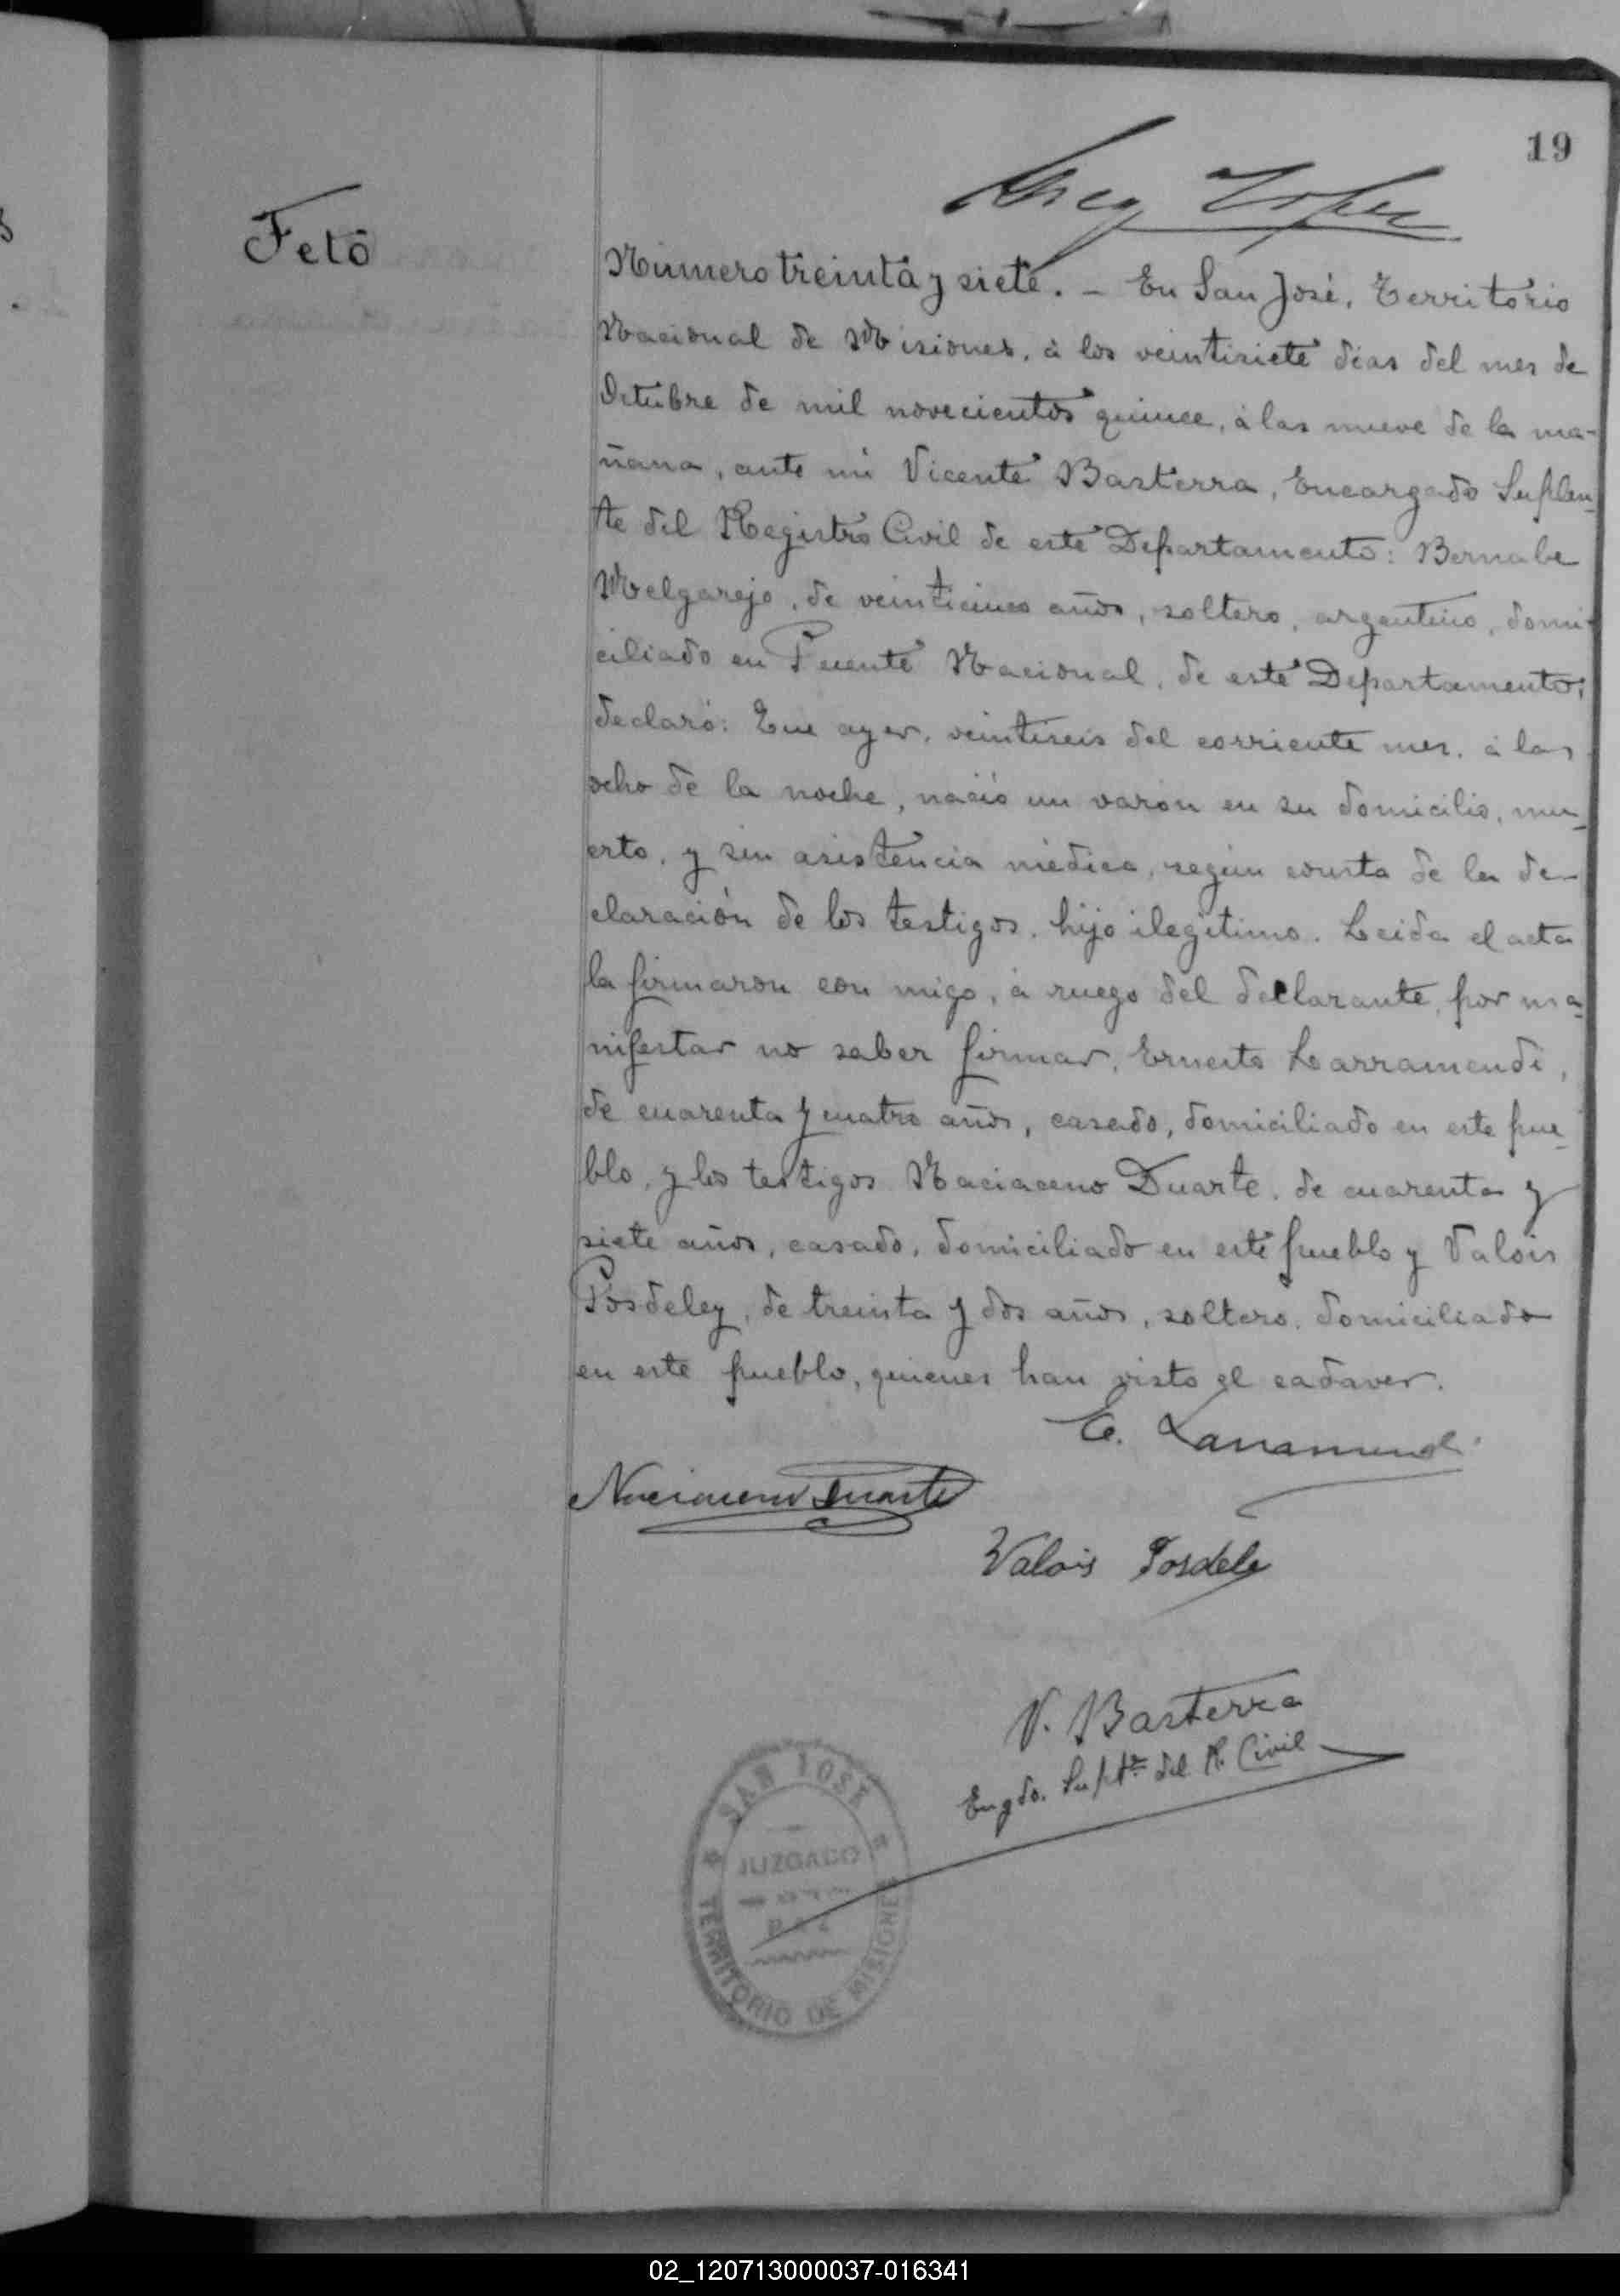 19
Feto
Lopez
Número treinta y siete. – En San José, Territorio
Nacional de Misiones, á los veintisiete días del mes de
Octubre de mil novecientos quince, á las nueve de la ma-
ñana, ante mi Vicente Basterra, Encargado Suplen-
te del Registro Civil de este Departamento: Bernabe
Melgarejo, de veinticinco años, soltero, argentino, domi-
ciliado en Puente Nacional, de este Departamento;
declaró: Que ayer, veintiseis del corriente mes, á las
ocho de la noche, nació un varón en su domicilio, mu-
erto, y sin asistencia médica, según consta de la de-
claración de los testigos, hijo ilegítimo. Leida el acta
la firmaron con migo, á ruego del declarante, por ma-
nifestar no saber firmar, Ernesto Larramendi,
de cuarenta y cuatro años, casado, domiciliado en este pue-
blo, y los testigos Naciaceno Duarte, de cuarenta y
siete años, casado, domiciliado en este pueblo y Valois
Posdeley, de treinta y dos años, soltero, domiciliado
en este pueblo, quienes han visto el cadaver.
E. Larramendi
Naciaceno Duarte
Valois Posdeley
V. Basterra
Engdo. Suplte del R. Civil
SAN JOSE
JUZGADO
PAZ
TERRITORIO DE MISIONES
02_120713000037-016341